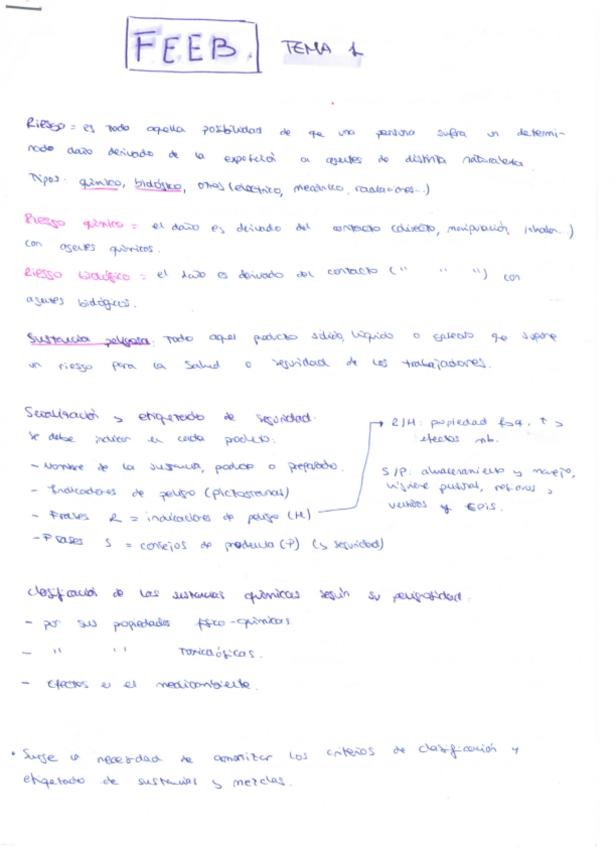 FEEB. TEMA 1
Riesgo = es todo aquella posibilidad de que una persona sufra un determi-
nado daño derivado de la exposición a agentes de distinta naturaleza
Tipos: químico, biológico, otros (eléctrico, mecánico, radiaciones...)
Riesgo químico = el daño es derivado del contacto (directo, manipulación, inhalac..)
con agentes químicos.
Riesgo biológico = el daño es derivado del contacto (" " ") con
agentes biológicos.
Sustancia peligrosa: Todo aquel producto sólido, líquido o gaseoso que supone
un riesgo para la salud o seguridad de los trabajadores.
Señalización y etiquetado de seguridad.
Se debe indicar en cada producto:
- Nombre de la sustancia, producto o preparado.
- Indicadores de peligro (pictogramas)
- Frases R = indicadores de peligro (H)
- Frases S = consejos de prudencia (P) (y seguridad)
R/H: propiedad fsq, T y
efectos mb.
S/P: almacenamiento y manejo,
higiene personal, y
vertidos y EPIS.
Clasificación de las sustancias químicas según su peligrosidad.
- por sus propiedades físico-químicas
- " " Toxicológicas.
- efectos en el medioambiente.
• Surge la necesidad de armonizar los criterios de clasificación y
etiquetado de sustancias y mezclas.